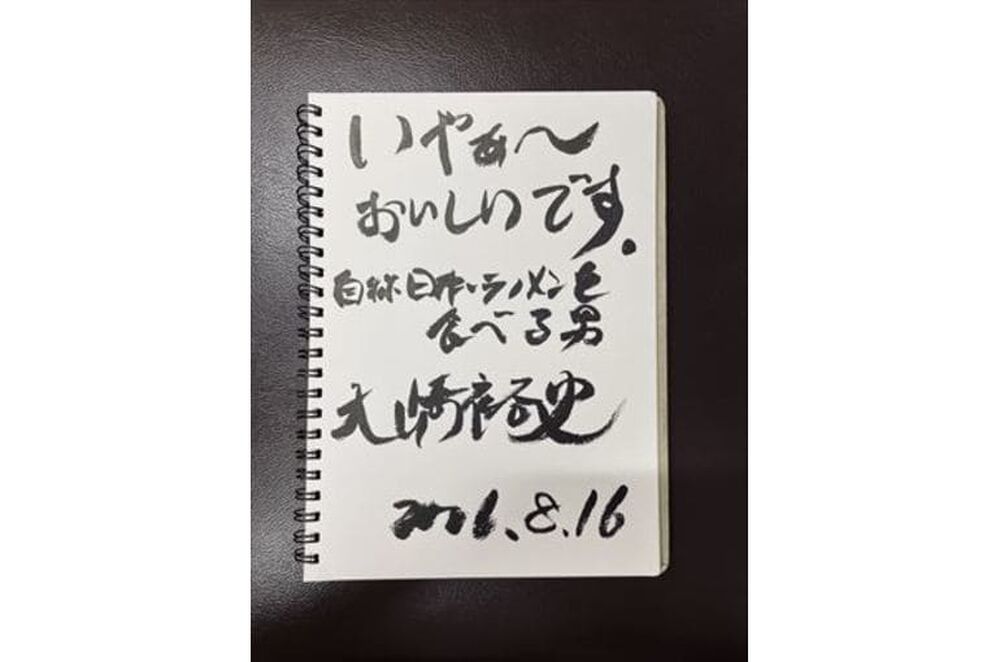 いやぁ〜
おいしいです。
自称日本一ラーメンを
食べる男
大崎裕史
8.16